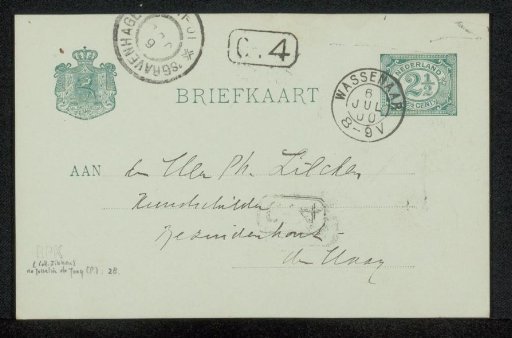 'SGRAVENHAGE
C. 4
NEDERLAND
2½
CENT
WASSENAAR
6
JUL
00
8-9V
BRIEFKAART
AAN den Heer Ph. Zilcken
Kunstschilder
4
Bezuidenhout
den Haag
RPK